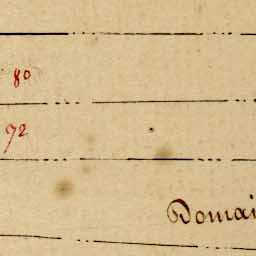 80
92
Domai